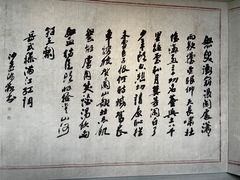 怒髮衝冠憑闌處瀟瀟
雨歇擡望眼仰天長嘯壯
懷激烈三十功名塵與土八千
里路雲和月莫等閒白了
少年頭空悲切靖康恥猶
未雪臣子恨何時滅駕長
車踏破賀蘭山缺壯志飢
餐胡虜肉笑談渴飲匈
奴血待從頭收拾舊山河
朝天闕
岳武穆滿江紅詞
沙孟海